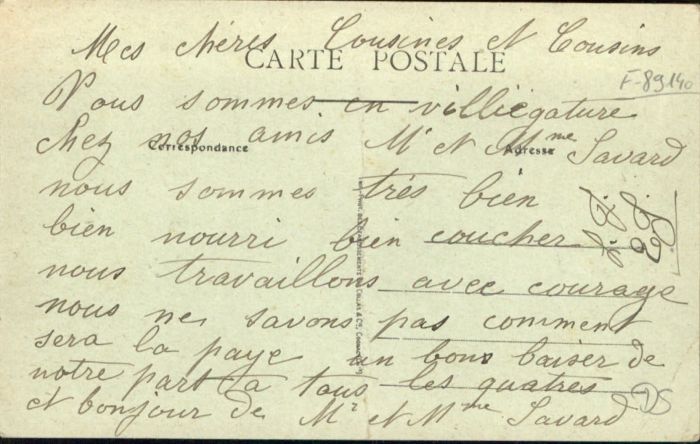 Mes chéres Cousines et Cousins
CARTE POSTALE
F-89140
Nous sommes en villiégature
Correspondance
Adresse
chez nos amis Mr et Mme Savard
nous sommes trés bien
bien nourri bien coucher
nous travaillons avec courage
nous ne savons pas comment
sera la paye un bons baiser de
notre part a tous les quatres
et bonjour de Mr et Mme Savard
DS